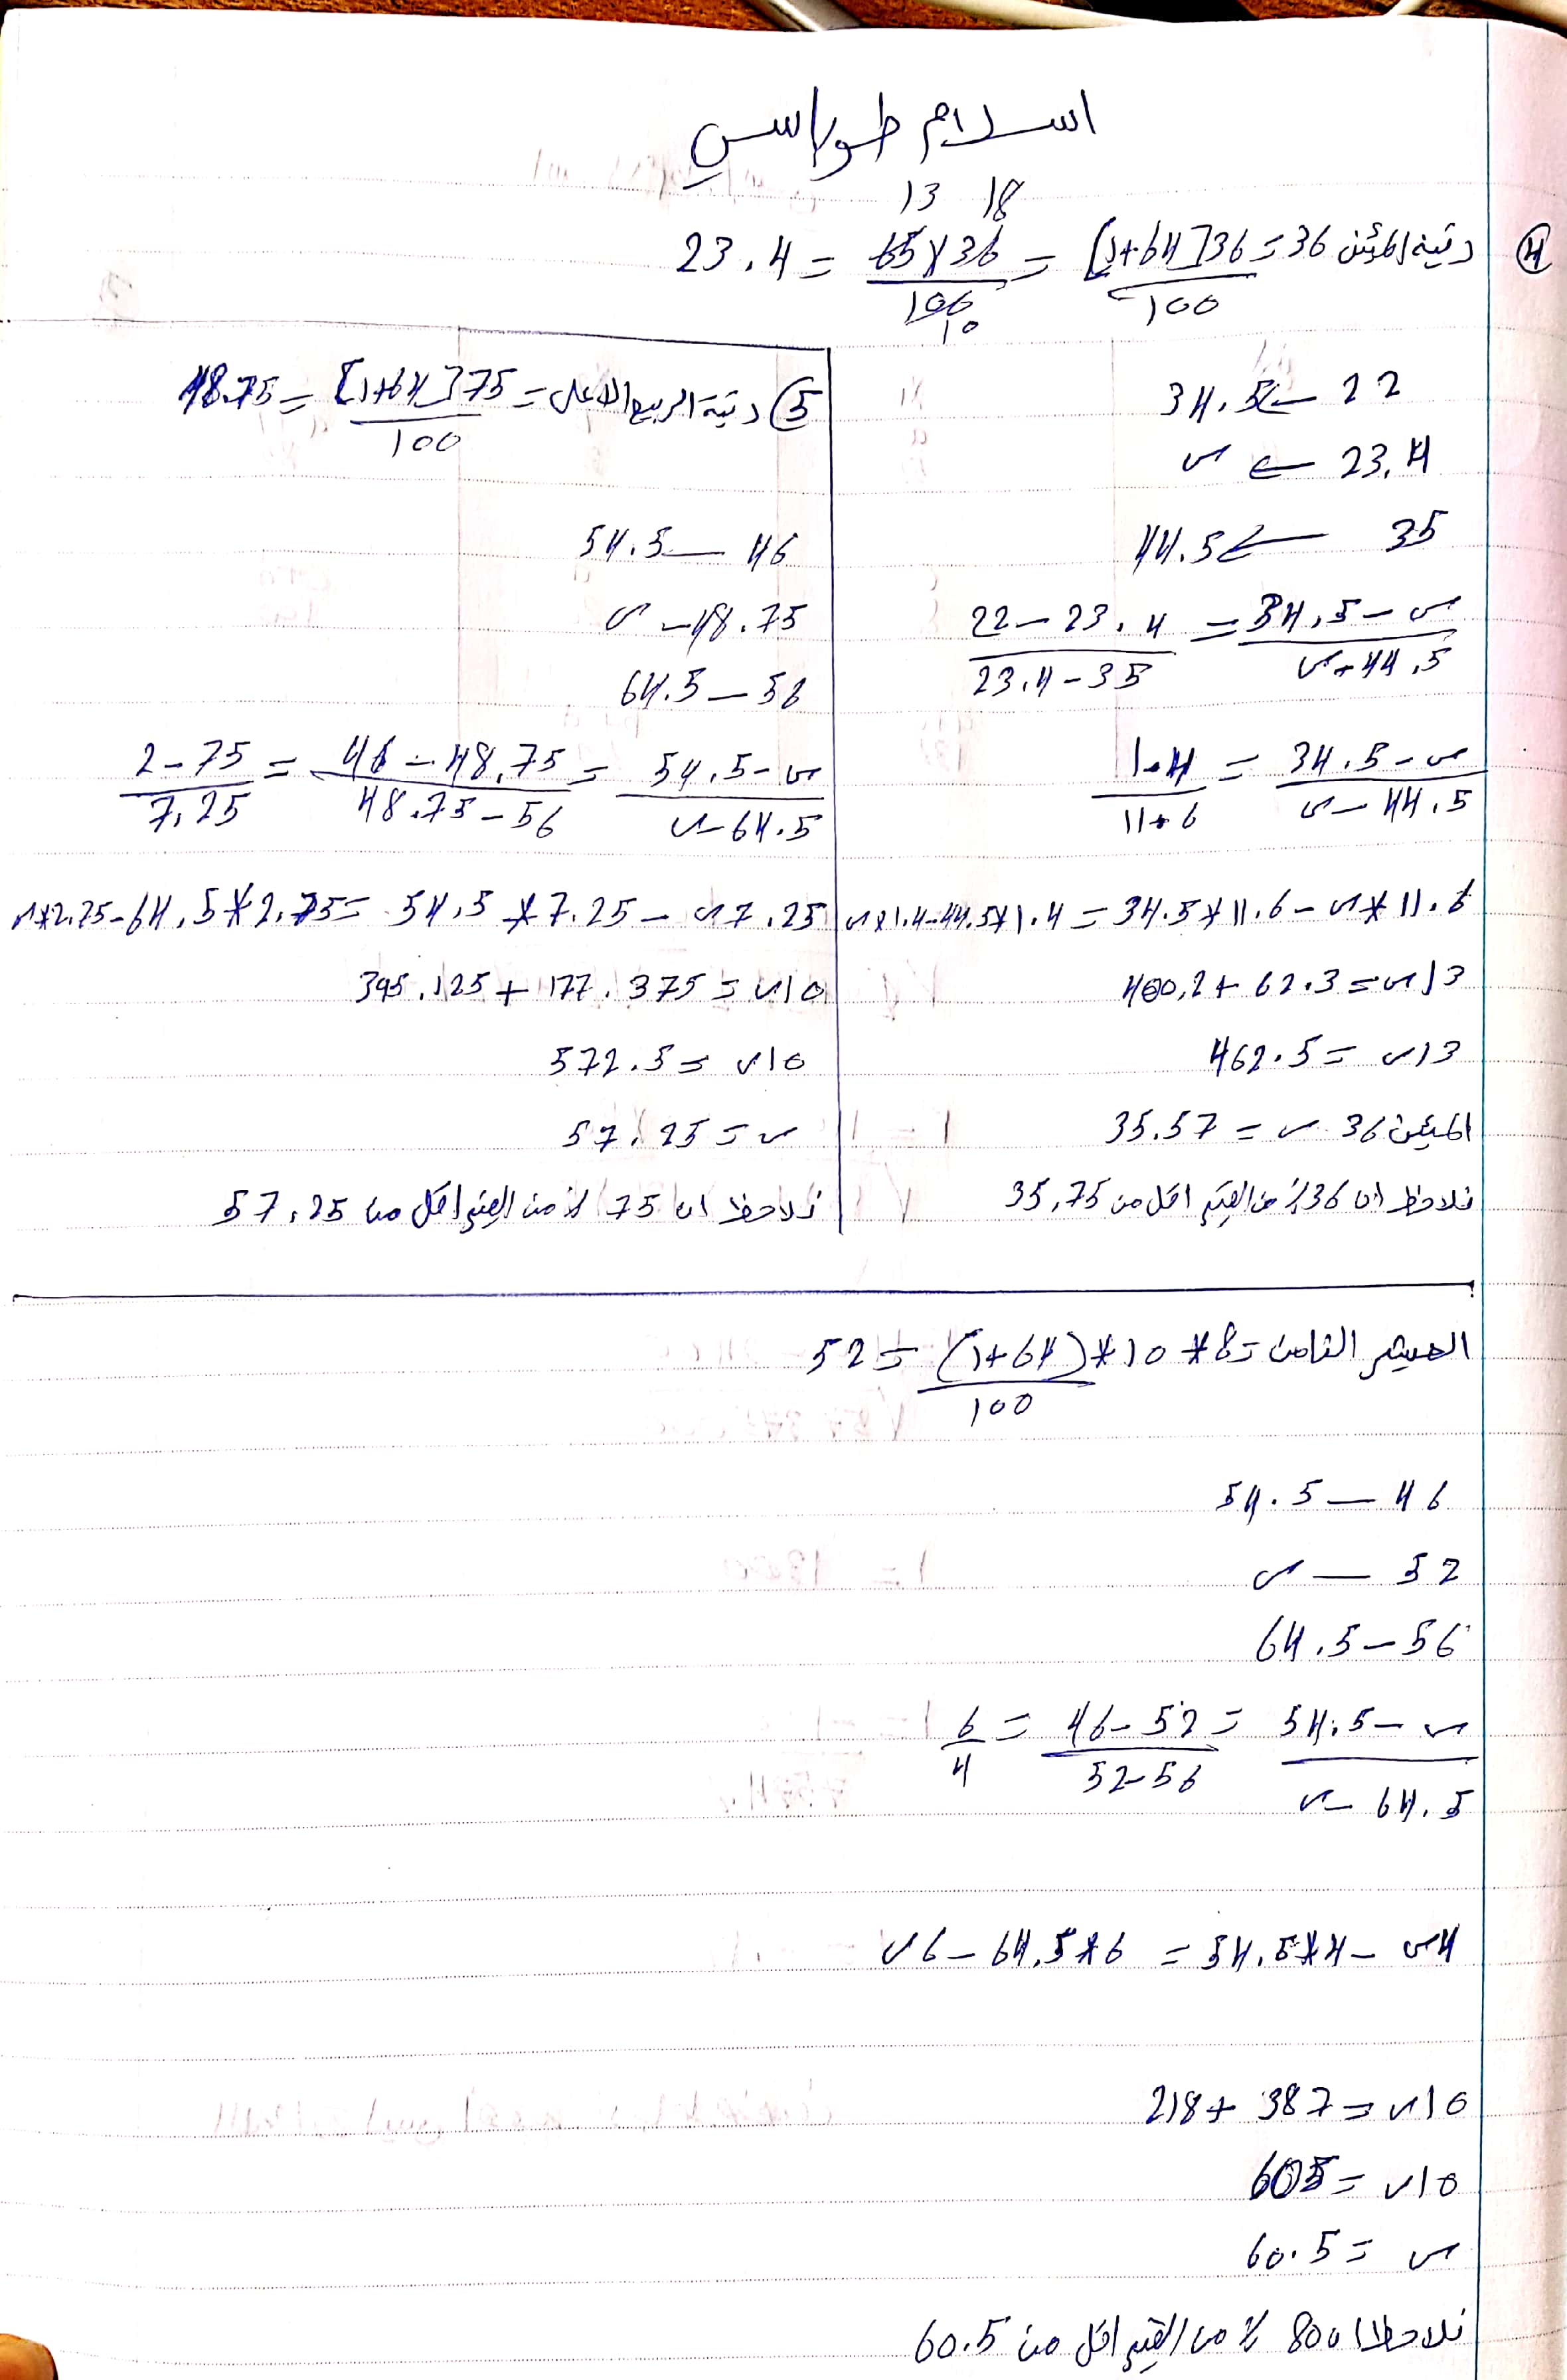 اسلام طوباسي
13 18
④ رتبة المئين 36 = [1+64]36/100 = 65×36/100 = 23.4
10
22 ← 34.5
23.4 ← س
35 ← 44.5
34.5-س/س-44.5 = 22-23.4/23.4-35
34.5-س/س-44.5 = 1.4/11.6
س*1.4-44.5*1.4 = 34.5*11.6-س*11.6
400.2+62.3 = س13
462.5 = س13
المئين 36 س = 35.57
نلاحظ ان 36٪ من القيم اقل من 35.75
⑤ رتبة الربيع الاعلى = [1+64]75/100 = 48.75
46 — 54.5
48.75 — س
56 — 64.5
54.5-س/س-64.5 = 46-48.75/48.75-56 = 2-75/7.25
س*2.75-64.5*2.75 = 54.5*7.25-س7.25
395.125+177.375 = س10
572.5 = س10
57.25 = س
نلاحظ ان 75٪ من القيم اقل من 57.25
العشير الثامن = 8*10*(1+64)/100 = 52
46 — 54.5
52 — س
56 — 64.5
54.5-س/س-64.5 = 46-52/52-56 = 6/4
س6-64.5*6 = 54.5*4-س4
218+387 = س10
605 = س10
60.5 = س
نلاحظ ان 80٪ من القيم اقل من 60.5